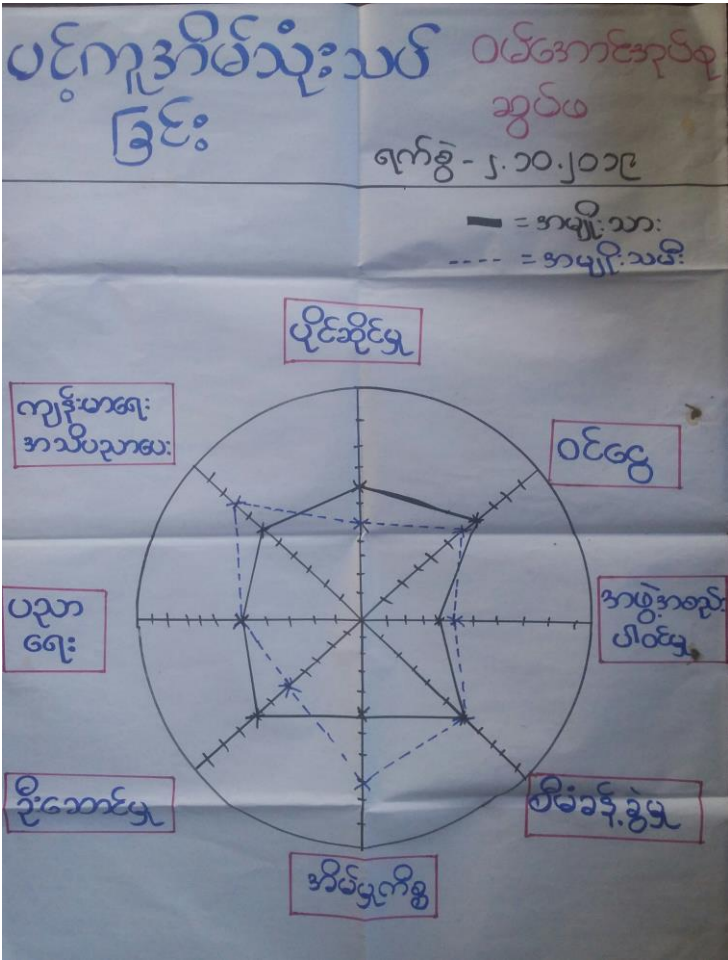 ပင့်ကူအိမ်သုံးသပ်
ခြင်း
ဝမ်အောင်အုပ်စု
ဆွပ်ဖ
ရက်စွဲ - ၂.၁၀.၂၀၁၉
= အမျိုးသား
= အမျိုးသမီး
ပိုင်ဆိုင်မှု
ကျန်းမာရေး
အသိပညာပေး
ဝင်ငွေ
ပညာ
ရေး
အဖွဲ့အစည်း
ပါဝင်မှု
ဦးဆောင်မှု
စီမံခန့်ခွဲမှု
အိမ်မှုကိစ္စ